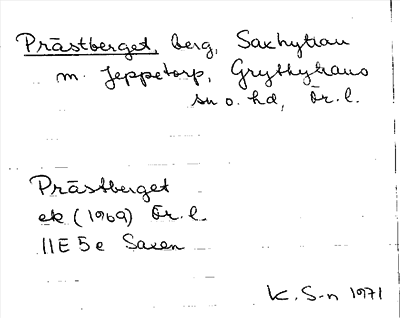 Prästberget, berg, Saxhyttan
m. Jeppetorp, Grythyttans
sn o. hd, Ör. l.
Prästberget
ek (1969) Ör. l.
11E 5e Saxen
K. S-n 1971